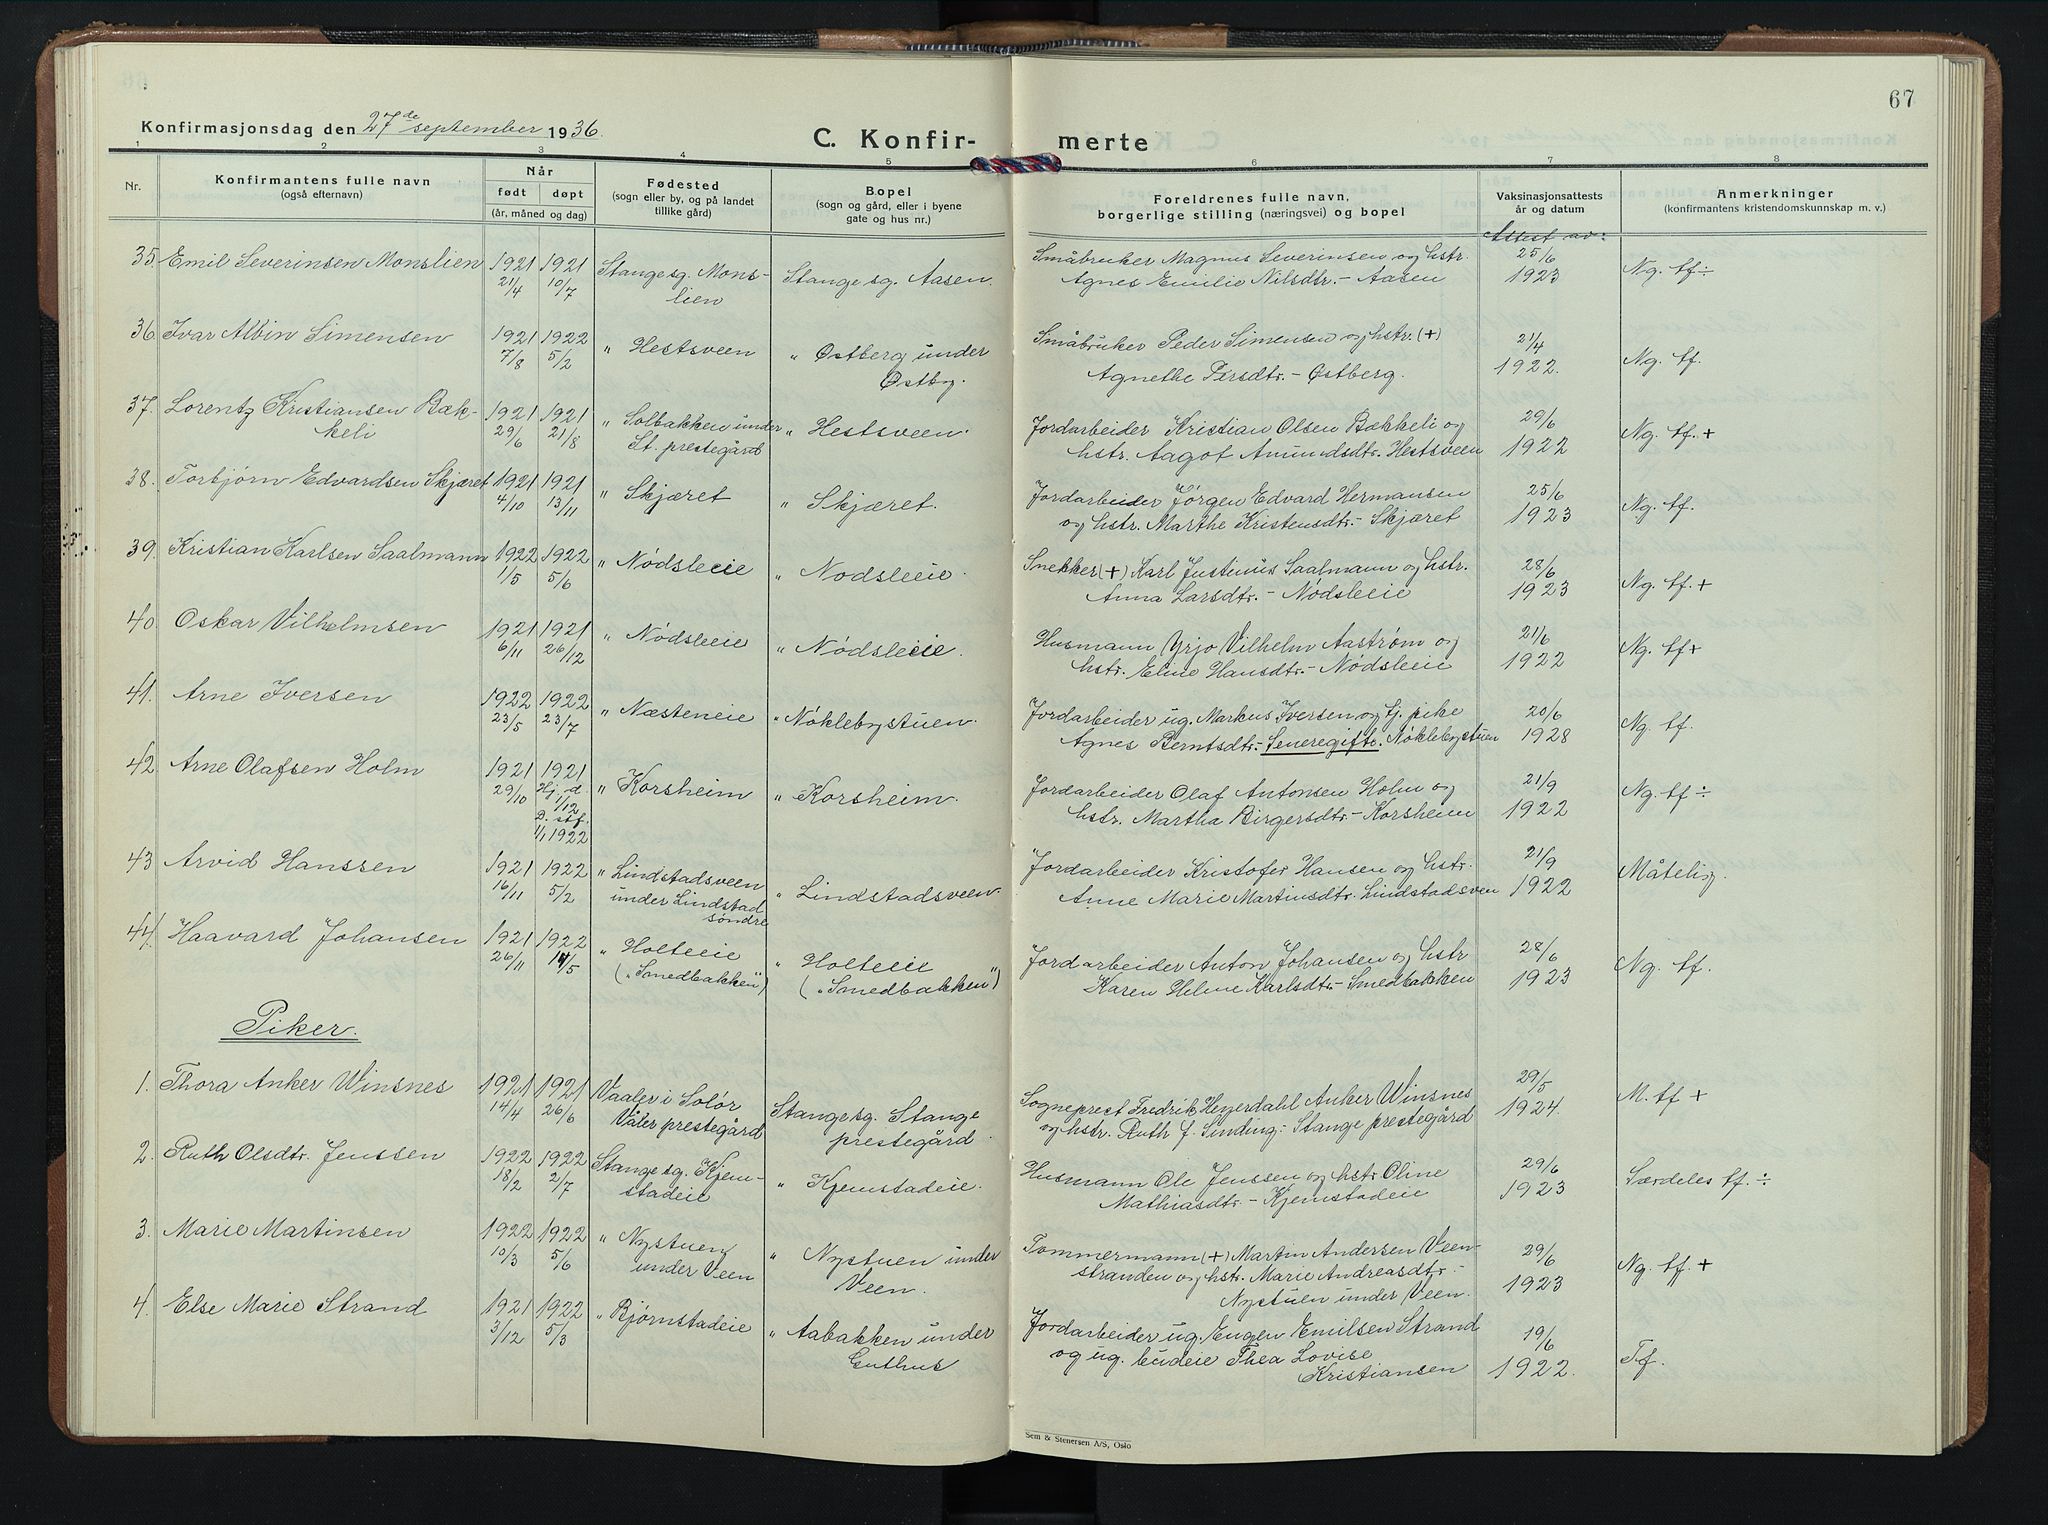 67
Konfirmasjonsdag den 27de september 1936.
C. Konfir- merte
1 2 3 4 5 6 7 8
Nr.
Konfirmantens fulle navn
(også efternavn)
Når
født døpt
(år, måned og dag)
Fødested
(sogn eller by, og på landet
tillike gård)
Bopel
(sogn og gård, eller i byene
gate og hus nr.)
Foreldrenes fulle navn,
borgerlige stilling (næringsvei) og bopel
Vaksinasjonsattests
år og datum
Attest av:
Anmerkninger
(konfirmantens kristendomskunnskap m. v.)
35. Emil Severinsen Monslien 1921 1921 Stange sg. Mons- Stange sg. Aasen. Småbruker Magnus Severinsen og hstr. 25/6 Ng. tf ÷
21/4 10/7 lien Agnes Emilie Nilsdtr. - Aasen 1923
36. Ivar Albin Simensen 1921 1922 " Hestsveen " Østberg under Småbruker Peder Simensen og hstr. (+) 21/4 Ng. tf.
7/8 5/2 Østby. Agnethe Persdtr. - Østberg. 1922.
37. Lorentz Kristiansen Bæk- 1921 1921 " Solbakken under " Hestsveen. Jordarbeider Kristian Olsen Bækkeli og 29/6 Ng. tf. +
keli 29/6 21/8 St. prestegård hstr. Aagot Amundsdtr. Hestsveen 1922
38. Torbjørn Edvardsen Skjæret 1921 1921 " Skjæret " Skjæret. Jordarbeider Jørgen Edvard Hermansen 25/6 Ng. tf.
4/10 13/11 og hstr. Marthe Kristensdtr. - Skjæret 1923
39. Kristian Karlsen Saalmann 1922 1922 " Nødsleeie " Nodsleeie. Snekker (+) Karl Justinus Saalmann og hstr. 28/6 Ng. tf. +
1/5 5/6 Anna Larsdtr. - Nødsleeie 1923
40. Oskar Vilhelmsen 1921 1921 " Nødsleeie " Nødsleeie. Husmann Yrjo Vilhelm Aastrøm og 21/6 Ng. tf +
6/11 26/12 hstr. Eline Hansdtr. - Nødsleeie 1922
41. Arne Iversen 1922 1922 " Næsteneie " Nøklebystuen. Jordarbeider ug. Markus Iversen og tj. pike 20/6 Ng. tf.
23/5 23/7 Agnes Berntsdtr. - Seneregifte. Nøklebystuen 1928
42. Arne Olafsen Holm 1921 1921 " Korsheim " Korsheim. Jordarbeider Olaf Antonsen Holm og 21/9 Ng. tf ÷
29/10 Hj. d. 1/12 D. stf. 1/1 1922 hstr. Martha Birgersdtr. - Korsheim 1922
43 Arvid Hanssen 1921 1922 " Lindstadsveen " Lindstadsveen. Jordarbeider Kristofer Hansen og hstr. 21/9 Måtelig.
16/11 5/2 under Lindstad søndre Anne Marie Martinsdtr. Lindstadsveen 1922
44. Haavard Johansen 1921 1922 " Holteeie " Holteeie Jordarbeider Anton Johansen og hstr 28/6 Ng. tf.
26/11 14/5 ("Smedbakken") ("Smedbakken") Karen Helene Karlsdtr. - Smedbakken 1923
Piker.
1. Thora Anker Winsnes 1921 1921 Vaaler i Solør Stange sg. Stange Sogneprest Fredrik Heyerdahl Anker Winsnes 29/5 M. tf +
14/4 26/6 Våler prestegård prestegård. og hstr. Ruth f. Sinding: Stange prestegård 1924.
2. Ruth Olsdtr. Jenssen 1922 1922 Stange sg. Kjem- " Kjemstadeie. Husmann Ole Jenssen og hstr. Oline 29/6 Særdeles tf. ÷
18/2 2/7 stadeie Mathiasdtr. - Kjemstadeie 1923
3. Marie Martinsen 1922 1922 " Nystuen " Nystuen under Tømmermann (+) Martin Andersen Veen- 29/6 Ng. tf. +
10/3 5/6 under Veen Veen. stranden og hstr. Marie Andreasdtr. - 1923
Nystuen under Veen.
4. Else Marie Strand 1921 1922 " Bjørnstadeie " Aabakken under Jordarbeider ug. Eugen Emilsen Strand 19/6 Tf.
3/12 5/3 Guthus og ug. budeie Thea Lovise 1922.
Kristiansen
Sem & Stenersen A/S, Oslo